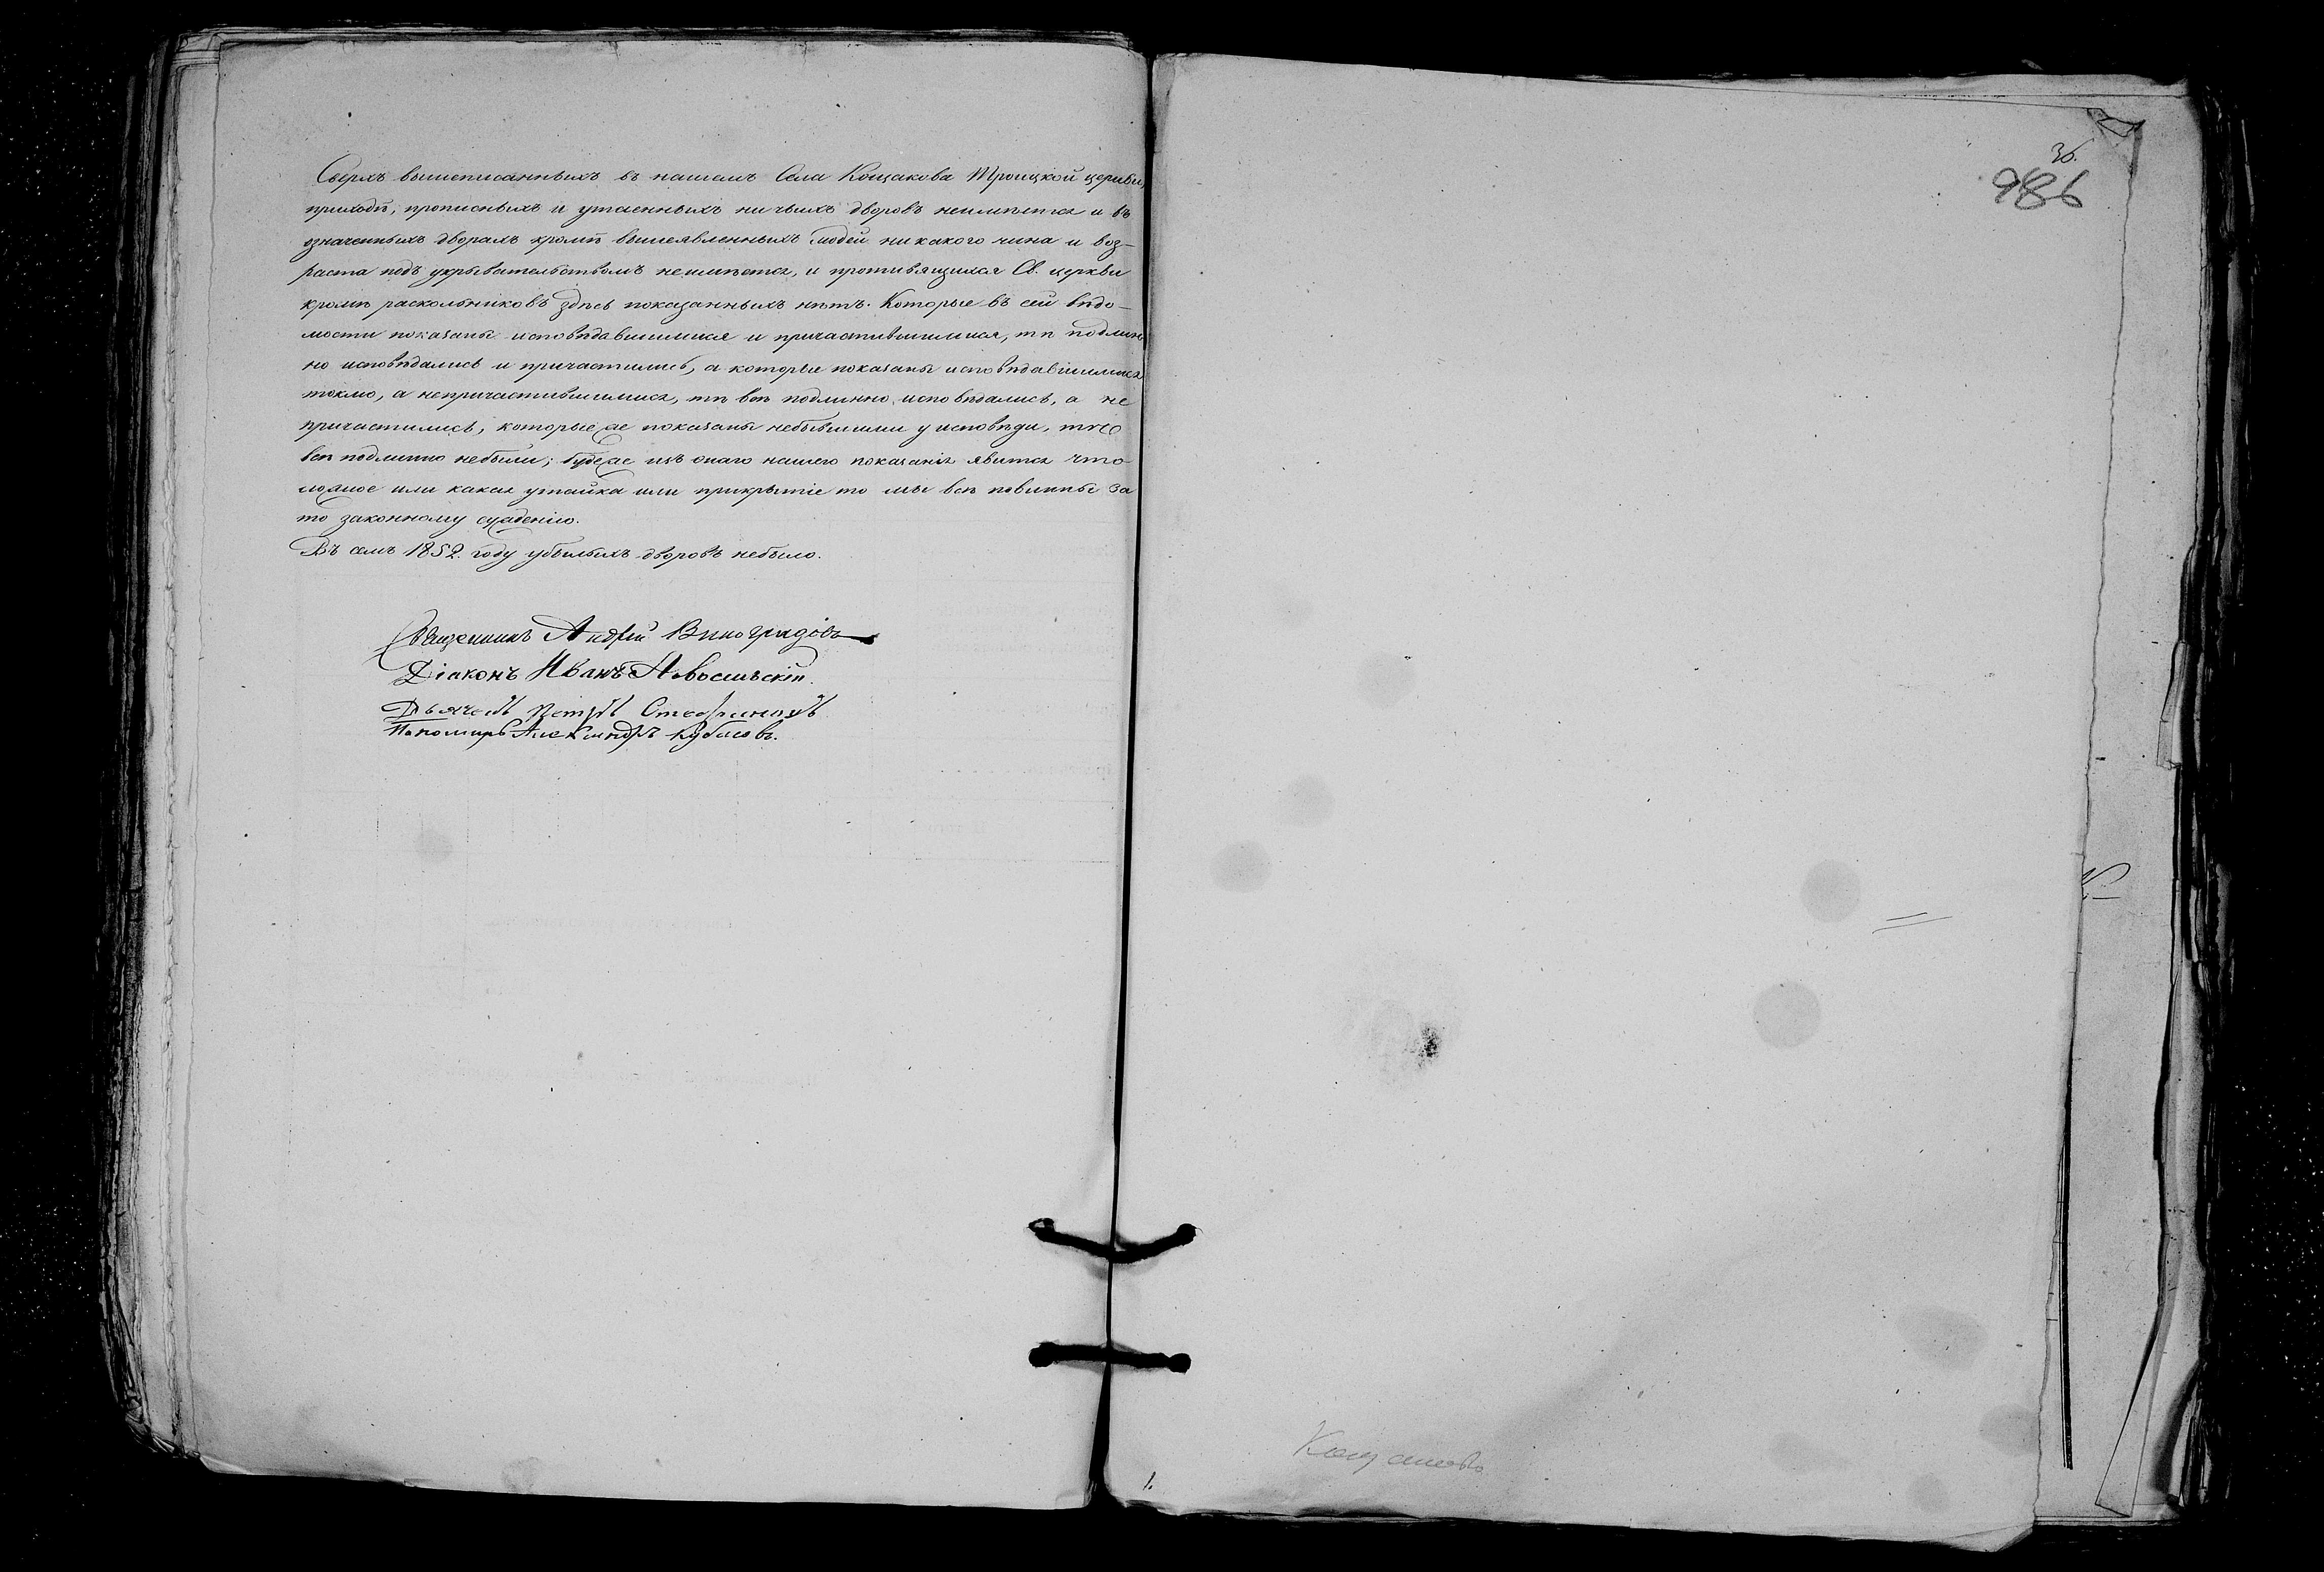 Сверхъ вышеписанныхъ въ нашемъ Села Кощакова Троицкой церкви,
приходѣ, прописныхъ и утаенныхъ ничьихъ дворовъ неимѣется и въ
означенныхъ дворахъ кромѣ вышеявленныхъ людей никакого чина и воз-
раста подъ укрывательствомъ неимѣется, и противящихся Св. церкви
кромѣ раскольниковъ здѣсь показанныхъ нѣтъ. Которые въ сей вѣдо-
мости показаны исповѣдавшимися и причастившимися, тѣ подлин
но исповѣдались и причастились, а которые показаны исповѣдавшимися
токмо, а непричастившимися, тѣ всѣ подлинно исповѣдались, а не
причастились, которые же показаны небывшими у исповѣди, тѣ
всѣ подлинно небыли; буде же изъ онаго нашего показанія явится что
ложное или какая утайка или прикрытіе то мы всѣ повинны за
то законному сужденію.
Въ семъ 1852. году убылыхъ дворовъ небыло.
Священникъ Андрей Виноградовъ
Діаконъ Иванъ Новосельскій.
Дьячекъ Петръ
Пономарь Александръ
36.
986
1.